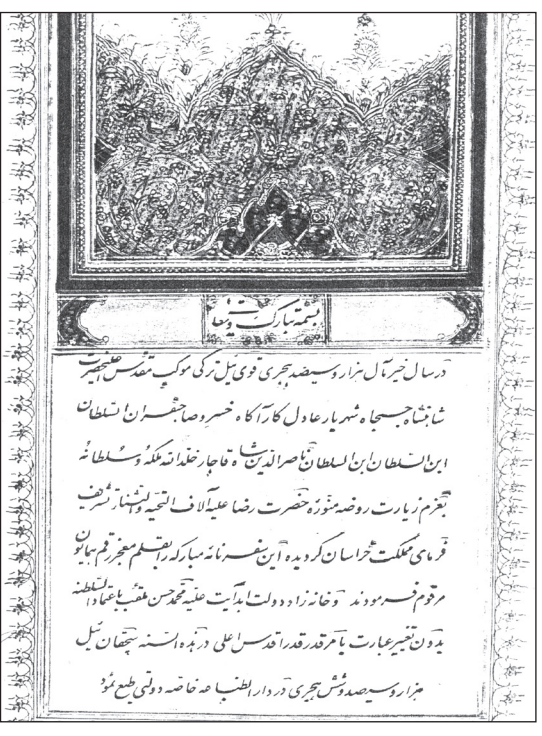 بسمه تبارک و تعالی
در سال خیر مآل هزار و سیصد هجری قوی ئیل ترکی موکب مقدس اعلیحضرت
شاهنشاه جمجاه شهریار عادل کارآگاه خسرو صاحبقران السلطان
ابن السلطان ابن السلطان ناصرالدین شاه قاجار خلدالله ملکه و سلطانه
بعزم زیارت روضه منوره حضرت رضا علیه آلاف التحیه والثناء تشریف
فرمای مملکت خراسان گردیده این سفرنامه مبارکه را بقلم معجز رقم همایون
مرقوم فرمودند و خانه زاد دولت ابدآیت علیه محمد حسن ملقب باعتماد السلطنه
بدون تغییر عبارت بامر قدر قدر اقدس اعلی در هذه السنه سیچقان ئیل
هزار و سیصد و شش هجری در دار الطباعه خاصه دولتی طبع نمود